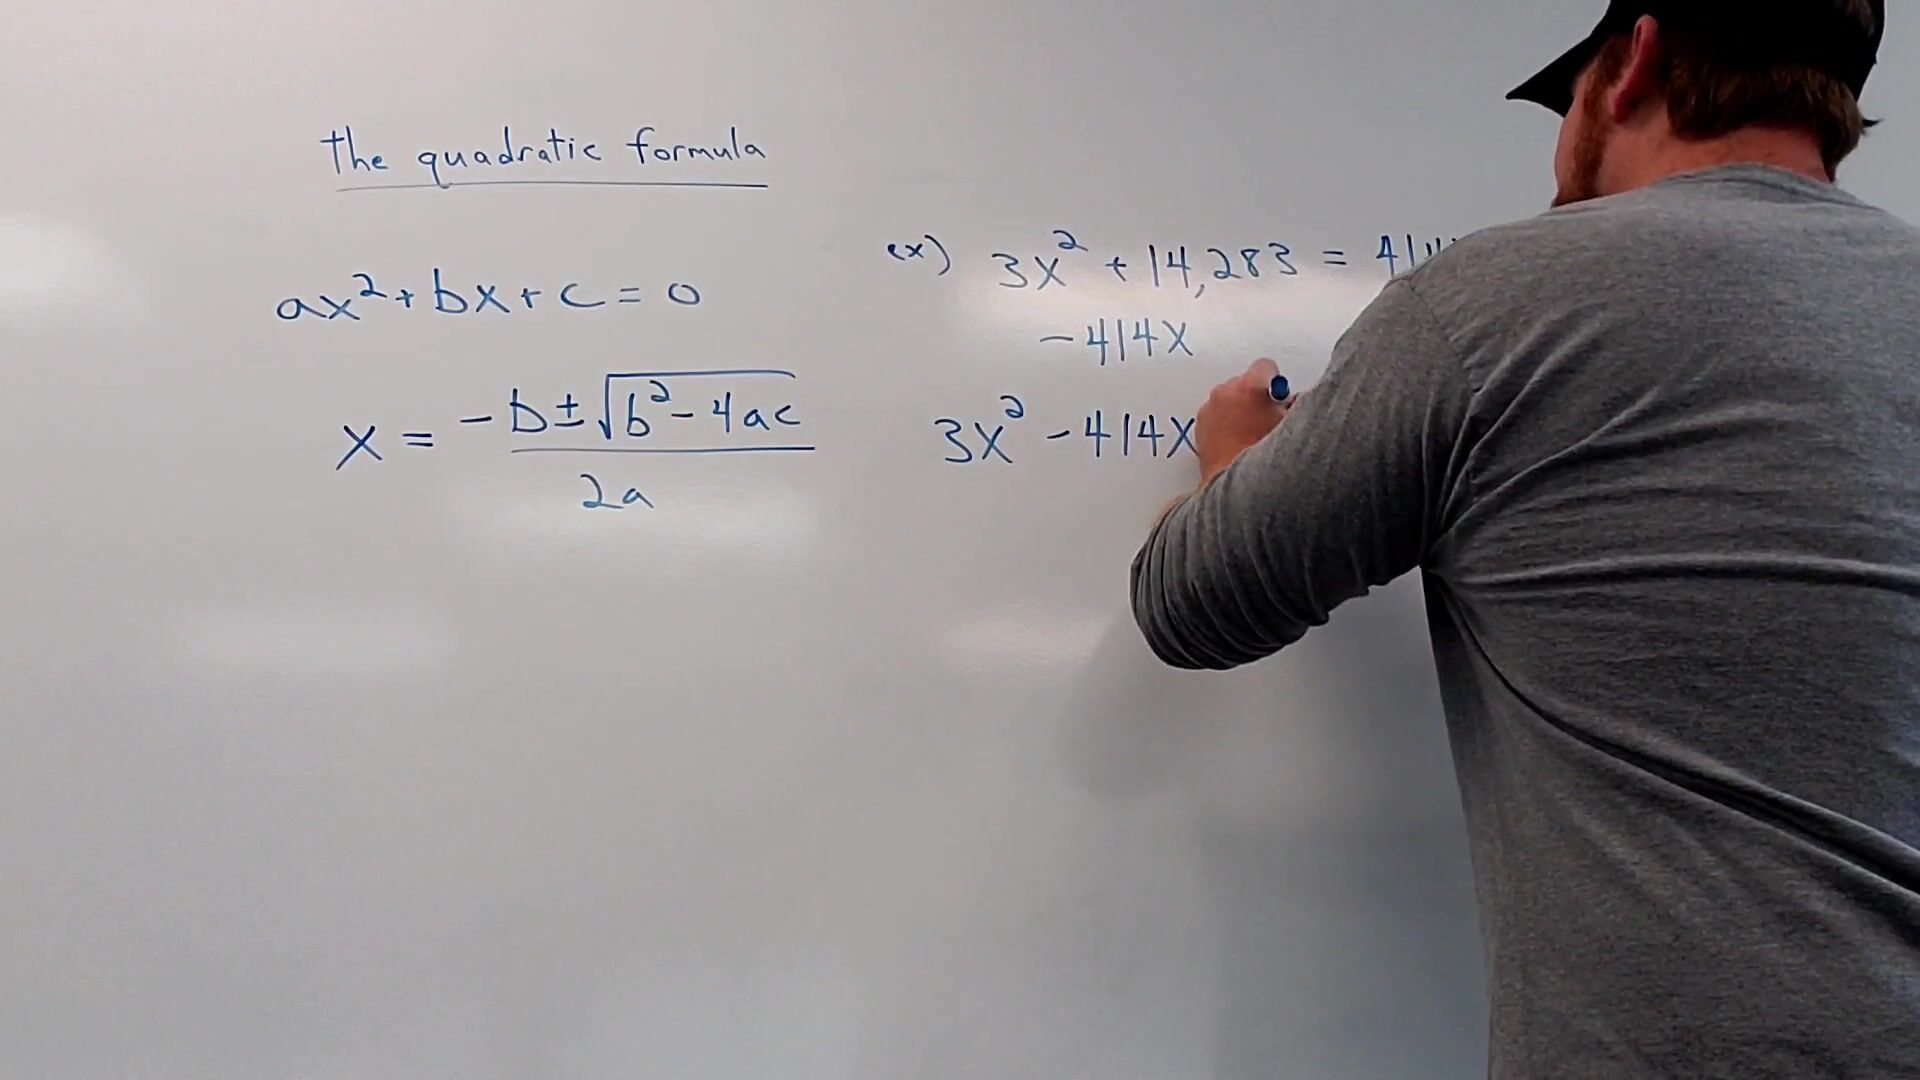 the quadratic formula
ax²+bx+c=0
x = -b±√b²-4ac / 2a
ex) 3x² + 14,283 = 414
-414x
3x² -414x